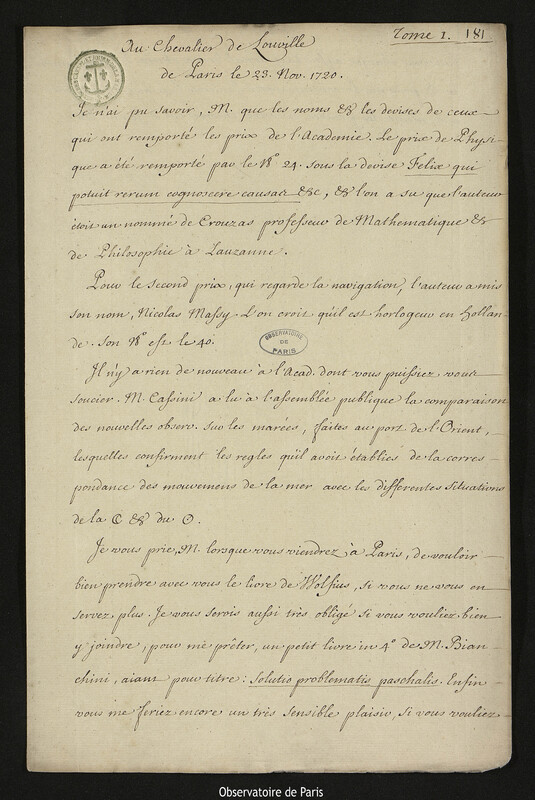 Tome 1. 181
Au Chevalier de Louville
de Paris le 23. Nov. 1720.
Je n'ai pu savoir, M. que les noms & les devises de ceux
qui ont remporté les prix de l'Academie. Le prix de Physi-
que a été remporté par le N.º 24. sous la devise Felix qui
potuit rerum cognoscere causas &c, & l'on a su que l'auteur
étoit un nommé de Crouzas professeur de Mathematique &
de Philosophie à Lauzanne.
Pour le second prix, qui regarde la navigation, l'auteur a mis
son nom, Nicolas Massy. L'on croit qu'il est horlogeur en Hollan-
de. son N.º est le 40.
OBSERVATOIRE
DE
PARIS
Il n'y a rien de nouveau à l'Acad. dont vous puissiez vous
soucier. M. Cassini a lu à l'assemblée publique la comparaison
des nouvelles observ. sur les marées, faites au port de l'Orient,
lesquelles confirment les regles qu'il avoit établies de la corres-
pondance des mouvemens de la mer avec les differentes situations
de la ☾ & du ☉.
Je vous prie, M. lorsque vous viendrez à Paris, de vouloir
bien prendre avec vous le livre de Wolfius, si vous ne vous en
servez plus. Je vous serois aussi très obligé si vous vouliez bien
y joindre, pour me prêter, un petit livre in 4.º de M. Bian-
chini, aiant pour titre: Solutio problematis paschalis. Enfin
vous me feriez encore un très sensible plaisir, si vous vouliez
Observatoire de Paris